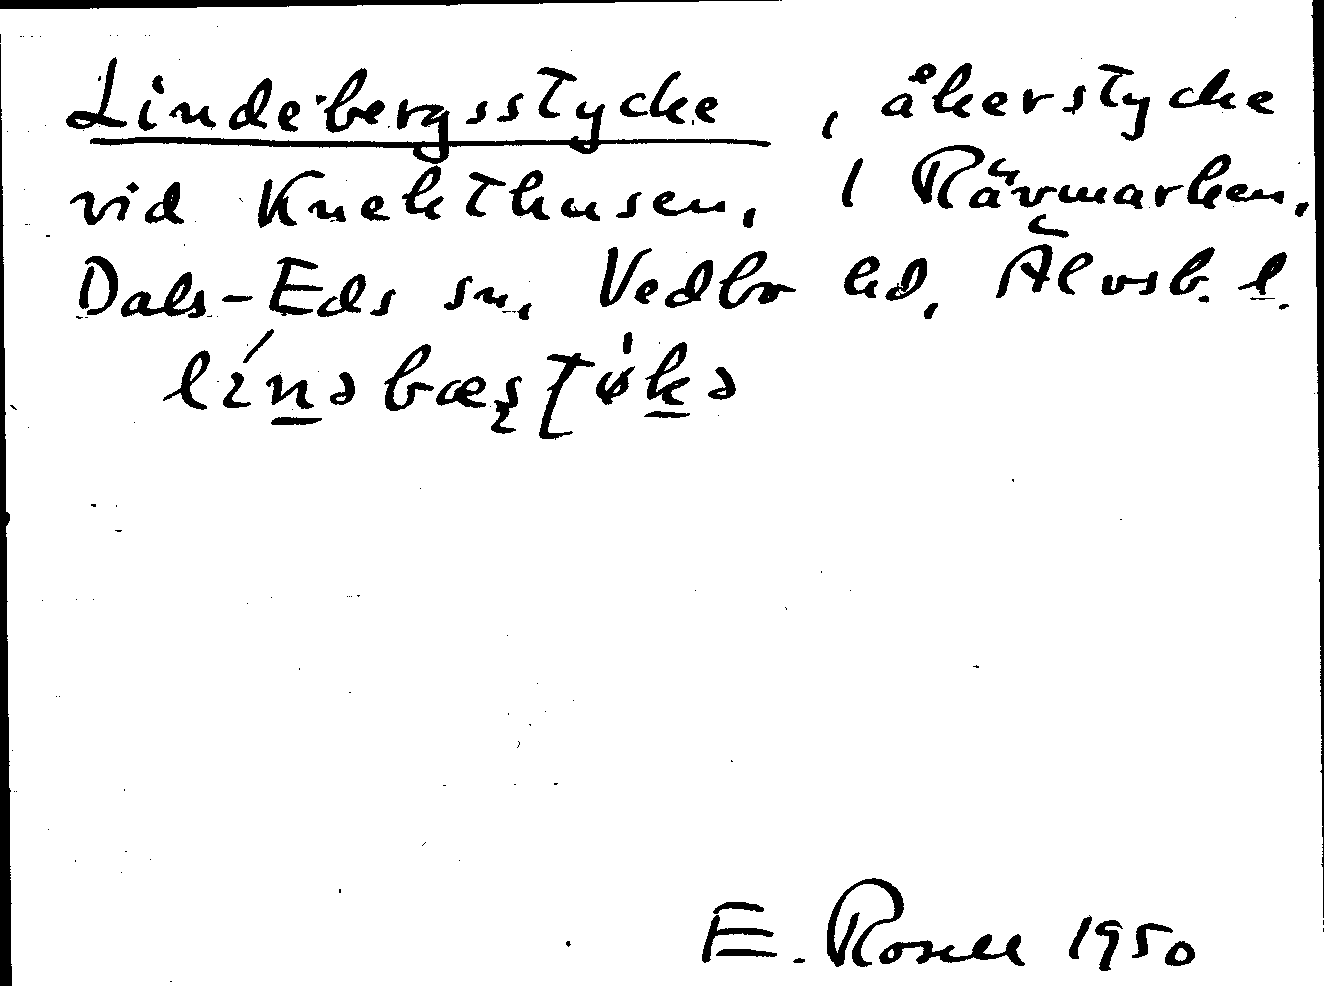 Lindebergsstycke, åkerstycke
vid Knekthusen, i Rävmarken,
Dals-Eds sn, Vedbo hd, Älvsb. l.
línəbæʂʈø̀kə
E. Rosell 1950